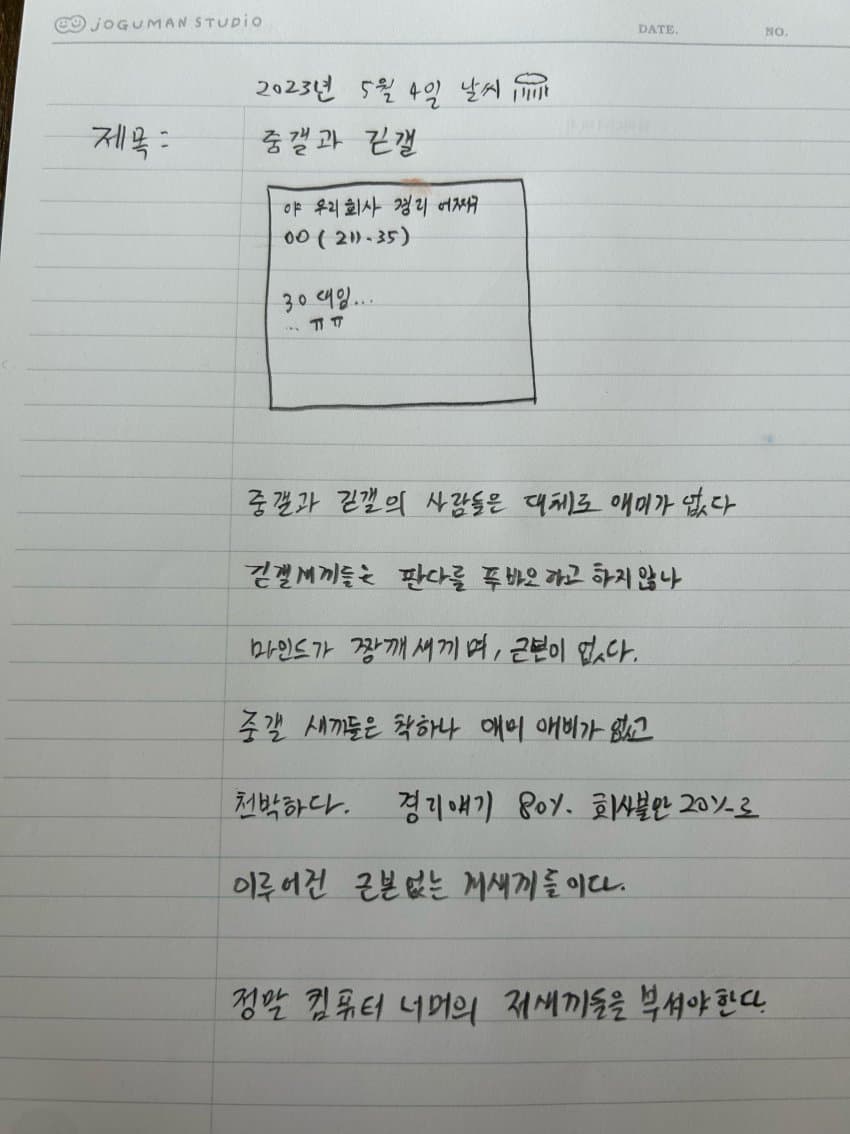 JOGUMAN STUDIO
DATE.
NO.
2023년 5월 4일 날씨
제목:
중갤과 긷갤
야 우리회사 경리 어쩌구
00(211.35)
30대임...
... ㅠㅠ
중갤과 긷갤의 사람들은 대체로 애미가 없다
긷갤새끼들은 판다를 푸바오라고 하지않나
마인드가 짱깨새끼며, 근본이 없다.
중갤 새끼들은 착하나 애미 애비가 없고
천박하다. 경리얘기 80%. 회사불만 20%로
이루어진 근본없는 새끼들이다.
정말 컴퓨터 너머의 새끼들을 부셔야한다.